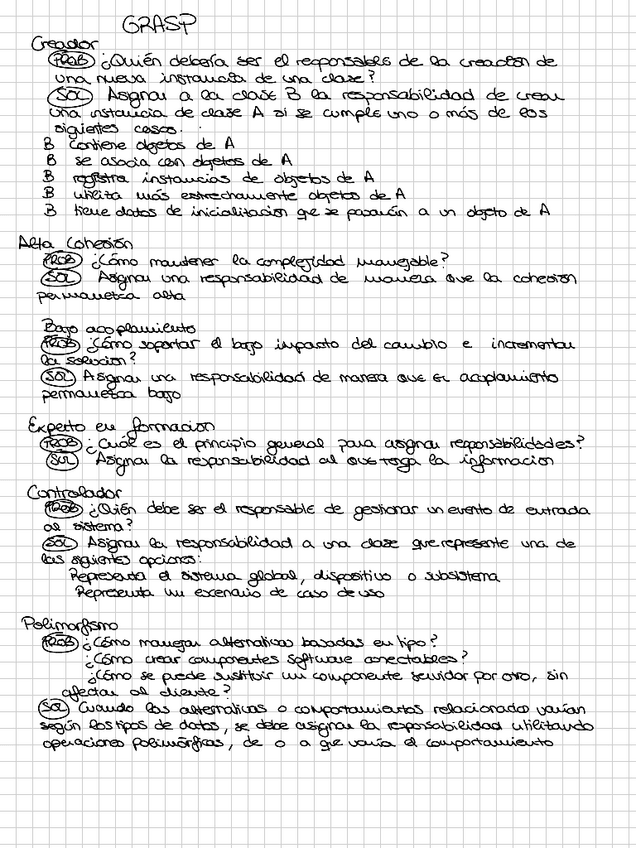 GRASP
Creador
PROB ¿Quién debería ser el responsable de la creación de
una nueva instancia de una clase?
SOL Asignar a la clase B la responsabilidad de crear
una instancia de clase A si se cumple uno o más de los
sigientes casos.
B contiene objetos de A
B se asocia con objetos de A
B registra instancias de objetos de A
B utiliza más estrechamente objetos de A
B tiene datos de inicialitacion qe se pasarán a un objeto de A
Alta Cohesión
PROB ¿Cómo mantener la complejidad manejable?
SOL Asignar una responsabilidad de manera que la cohesión
permanezca alta
Bajo acoplamiento
PROB ¿Cómo soportar el bajo impacto del cambio e incrementar
la solucion?
SOL Asignar una responsabilidad de manera que el acoplamiento
permanezca bajo
Experto en formacion
PROB ¿Cuál es el principio general para asignar responsabilidades?
SOL Asignar la responsabilidad al que tenga la informacion
Controlador
PROB ¿Quién debe ser el responsable de gestionar un evento de entrada
al sistema?
SOL Asignar la responsabilidad a una clase que represente una de
las siguientes opciones:
Representa el sistema global, dispositivo o subsistema
Representa un escenario de caso de uso
Polimorfismo
PROB ¿Cómo manejar alternativas basadas en tipo?
¿Cómo crear componentes software conectables?
¿Cómo se puede sustituir un componente servidor por otro, sin
afectar al cliente?
SOL Cuando las alternativas o comportamientos relacionados varían
según los tipos de datos, se debe asignar la responsabilidad utilitando
operaciones polimórficas, de o a qe varía el comportamiento